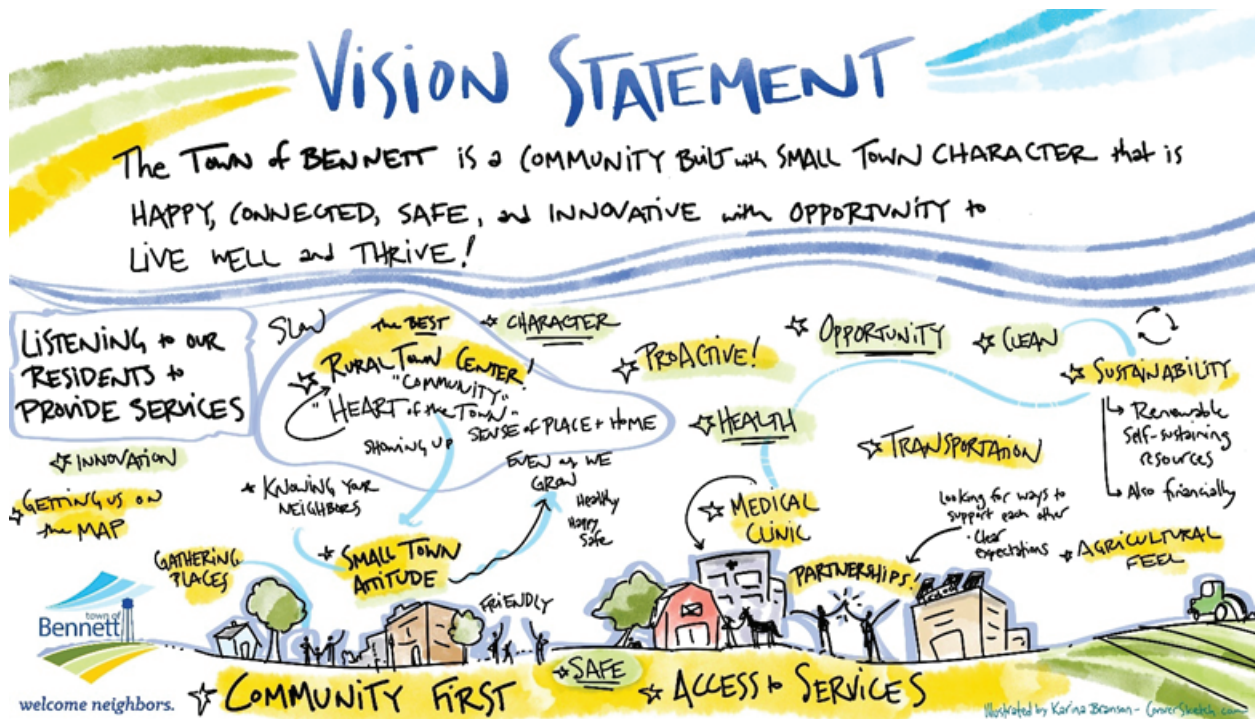 VISION STATEMENT
The TOWN of BENNETT is a COMMUNITY BUILT with SMALL TOWN CHARACTER that is
HAPPY, CONNECTED, SAFE, and INNOVATIVE with OPPORTUNITY to
LIVE WELL and THRIVE!
LISTENING to OUR
RESIDENTS to
PROVIDE SERVICES
SLOW
the BEST
RURAL TOWN CENTER!
"COMMUNITY"
"HEART of the TOWN"
SENSE of PLACE + HOME
SHOWING UP
CHARACTER
PROACTIVE!
OPPORTUNITY
CLEAN
SUSTAINABILITY
Renewable
Self-sustaining
resources
Also financially
HEALTH
TRANSPORTATION
INNOVATION
GETTING US ON
the MAP
KNOWING YOUR
NEIGHBORS
EVEN as WE
GROW
Healthy
Happy
Safe
MEDICAL
CLINIC
Looking for ways to
support each other
· Clear
expectations
AGRICULTURAL
FEEL
GATHERING
PLACES
SMALL TOWN
ATTITUDE
FRIENDLY
PARTNERSHIPS!
SCHOOL
town of
Bennett
welcome neighbors.
COMMUNITY FIRST
SAFE
ACCESS to SERVICES
Illustrated by Karina Branson - ConverSketch.com